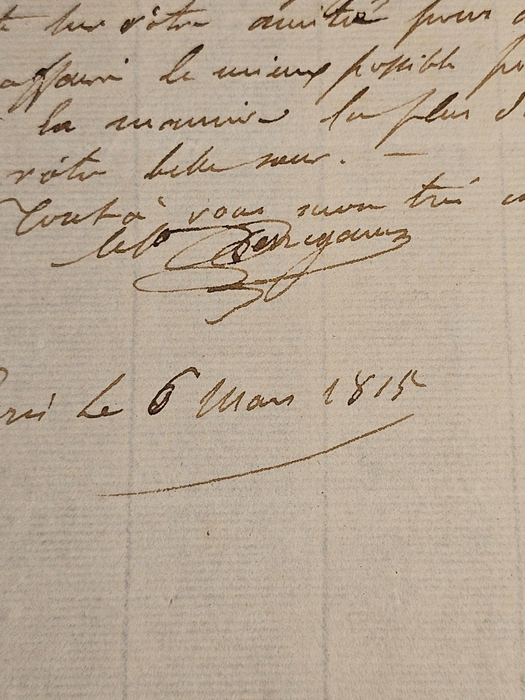 sur vôtre amitié pour
affaire le mieux possible
la maniere la plus
vôtre belle sœur. —
Tout à vous mon
le 6 Mars 1815